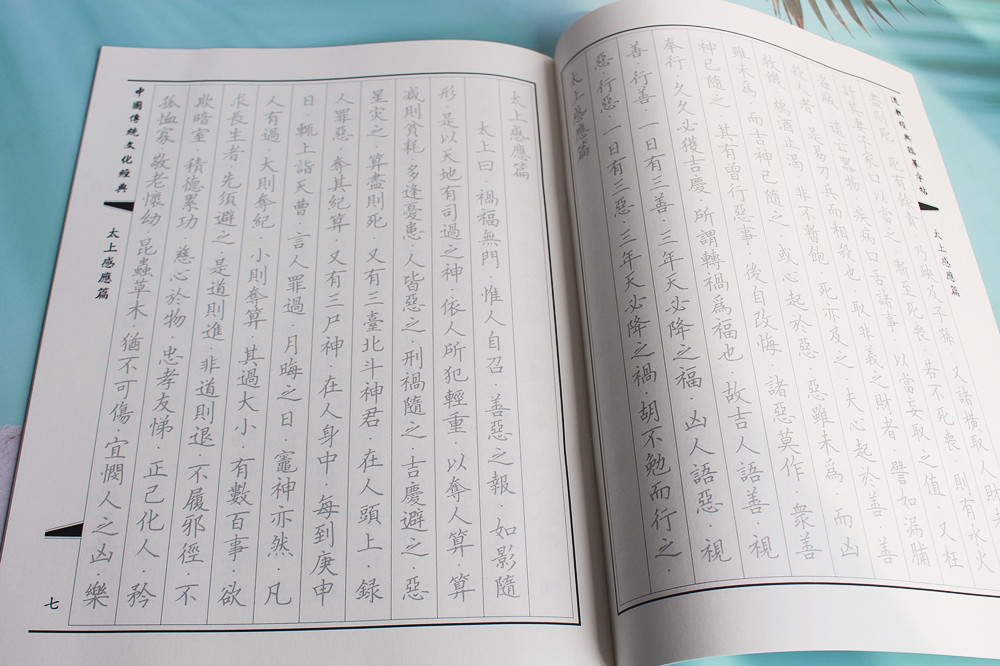 道教經典硬筆字帖
太上感應篇
盡則死·死有餘責·乃殃及子孫·又諸橫取人財
計其妻子家口以當之·漸至死喪·若不死喪·則有水火
盜賊·遺亡器物·疾病口舌諸事·以當妄取之值·又枉
殺人者·是易刀兵而相殺也·取非義之財者·譬如漏脯
救饑·鴆酒止渴·非不暫飽·死亦及之·夫心起於善·善
雖未爲·而吉神已隨之·或心起於惡·惡雖未爲·而凶
神已隨之·其有曾行惡事·後自改悔·諸惡莫作·衆善
奉行·久久必獲吉慶·所謂轉禍爲福也·故吉人語善·視
善·行善·一日有三善·三年天必降之福·凶人語惡·視
惡·行惡·一日有三惡·三年天必降之禍·胡不勉而行之·
太上感應篇
太上感應篇
太上曰·禍福無門·惟人自召·善惡之報·如影隨
形·是以天地有司過之神·依人所犯輕重·以奪人算·算
減則貧耗·多逢憂患·人皆惡之·刑禍隨之·吉慶避之·惡
星災之·算盡則死·又有三臺北斗神君·在人頭上·録
人罪惡·奪其紀算·又有三尸神·在人身中·每到庚申
日·輒上詣天曹·言人罪過·月晦之日·竈神亦然·凡
人有過·大則奪紀·小則奪算·其過大小·有數百事·欲
求長生者·先須避之·是道則進·非道則退·不履邪徑·不
欺暗室·積德累功·慈心於物·忠孝友悌·正己化人·矜
孤恤寡·敬老懷幼·昆蟲草木·猶不可傷·宜憫人之凶·樂
中國傳統文化經典
太上感應篇
七